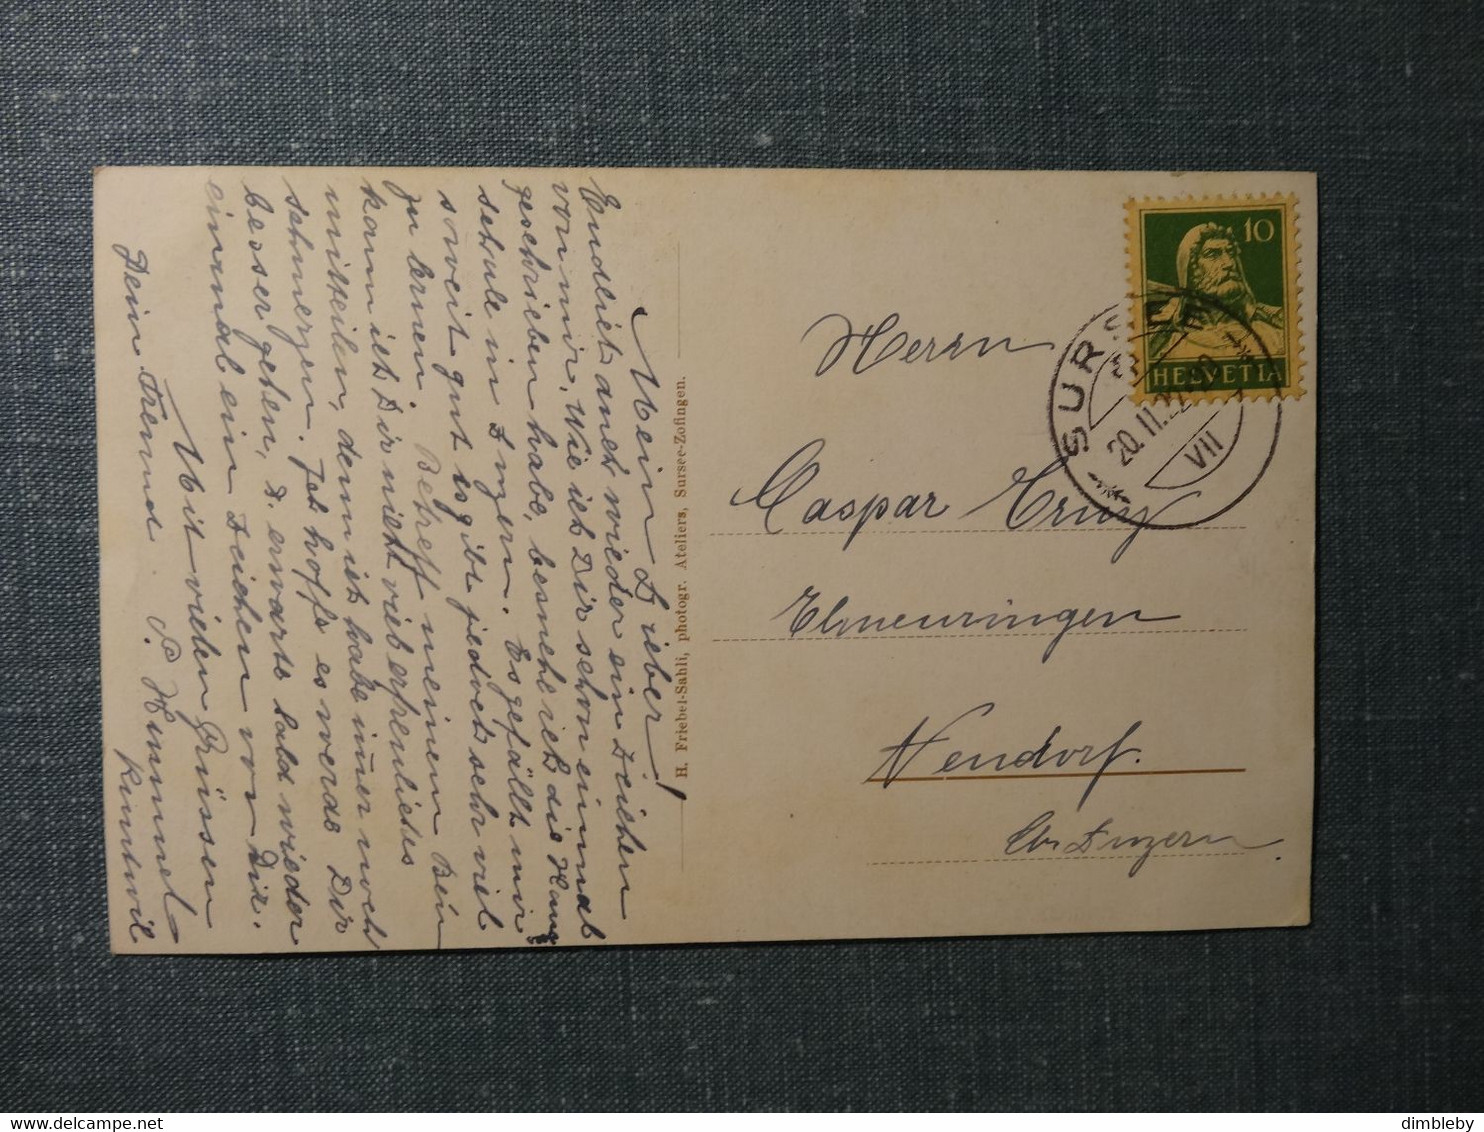 Mein Lieber!
Endlich auch wieder ein Zeichen
von mir. Wie ich Dir schon einmal
geschrieben habe, besuche ich die Handels
schule in Luzern. Es gefällt mir
soweit gut es gibt jedoch sehr viel
zu lernen. Betreff meinem Bein
kann ich Dir nicht viel erfreuliches
mitteilen, denn ich habe immer noch
schmerzen. Ich hoffe es werde Dir
besser gehen, &. erwarte bald wieder
einmal ein Zeichen von Dir.
Mit vielen Grüssen
Dein Freund S. Hummel
Runtwil
H. Friebel-Sahli, photogr. Ateliers, Sursee-Zofingen.
10
HELVETIA
SURSEE
20.II.
VII
Herrn
Caspar
Neudorf.
Ct. Luzern
dimbleby